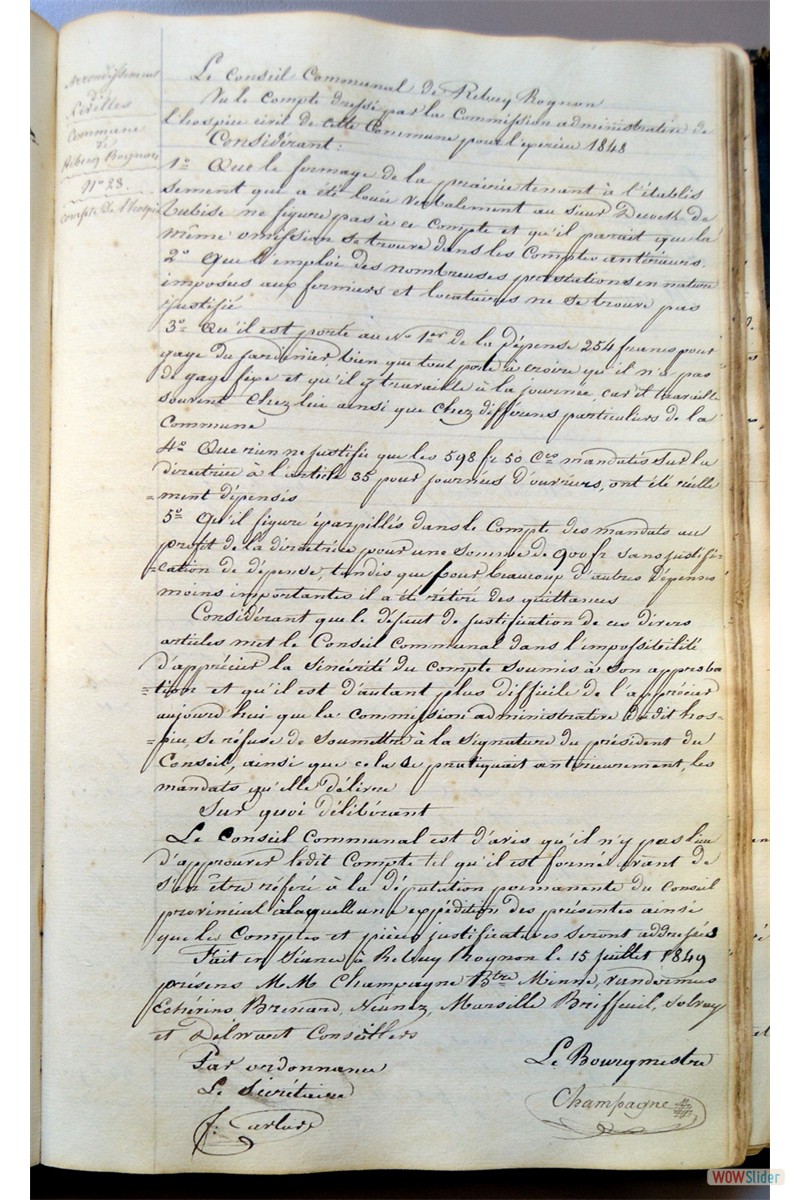 Arrondissement
de
Nivelles
Commune
de
Rebecq Rognon
N° 23.
Compte de l'hospice
Le Conseil Communal de Rebecq Rognon
Vu le Compte dressé par la Commission administrative de
l'hospice civil de cette Commune pour l'exercice 1848
Considérant :
1° Que le fermage de la prairie tenant à l'établis
sement que a été louée verbalement au sieur de
Tubise ne figure pas à ce Compte et qu'il parait que la
même omission se trouve dans les Comptes antérieurs.
2° Que l'emploi des nombreuses prestations en nature
imposées aux fermiers et locataires ne se trouve pas
justifié
3° Qu'il est porté au N° 1er de la dépense 254 francs pour
gage du jardinier, bien que tout porte à croire qu'il n'a pas
de gage fixe et qu'il y travaille à la journée, car il travaille
souvent Chez lui ainsi que chez différens particuliers de la
Commune
4° Que rien ne justifie que les 598 fr 50 Ces mandatés sur la
directrice à l'article 35 pour journées d'ouvriers, ont été réelle
=ment dépensés
5° Qu'il figure éparpillés dans le Compte des mandats au
profit de la directrice pour une somme de 900 fr sans justifi=
=cation de dépense, tandis que pour beaucoup d'autres dépenses
moins importantes il a été retiré des quittances
Considérant que le défaut de justification de ces divers
articles met le Conseil Communal dans l'impossibilité
d'apprécier la sincérité du Compte soumis à son approba
=tion et qu'il est d'autant plus difficile de l'apprécier
aujourd'hui que la Commission administrative dudit hos=
=pice, se refuse de soumettre à la signature du président du
Conseil, ainsi que cela se pratiquait antérieurement, les
mandats qu'elle délivre
Sur quoi délibérant
Le Conseil Communal est d'avis qu'il n'y pas lieu
d'approuver ledit Compte tel qu'il est formé avant de
s'en être référé à la députation permanente du Conseil
provincial à laquelle une expédition des présentes ainsi
que les Comptes et pièces justificatives seront addressés
Fait en séance à Rebecq Rognon le 15 juillet 1849
présens MM Champagne Btre Minne, Vandormus
Brenard, Marsille Briffeuil, Solvay
et Delwart Conseillers
Par ordonnance
Le Bourgmestre
Le Secrétaire
Champagne
WOWSlider